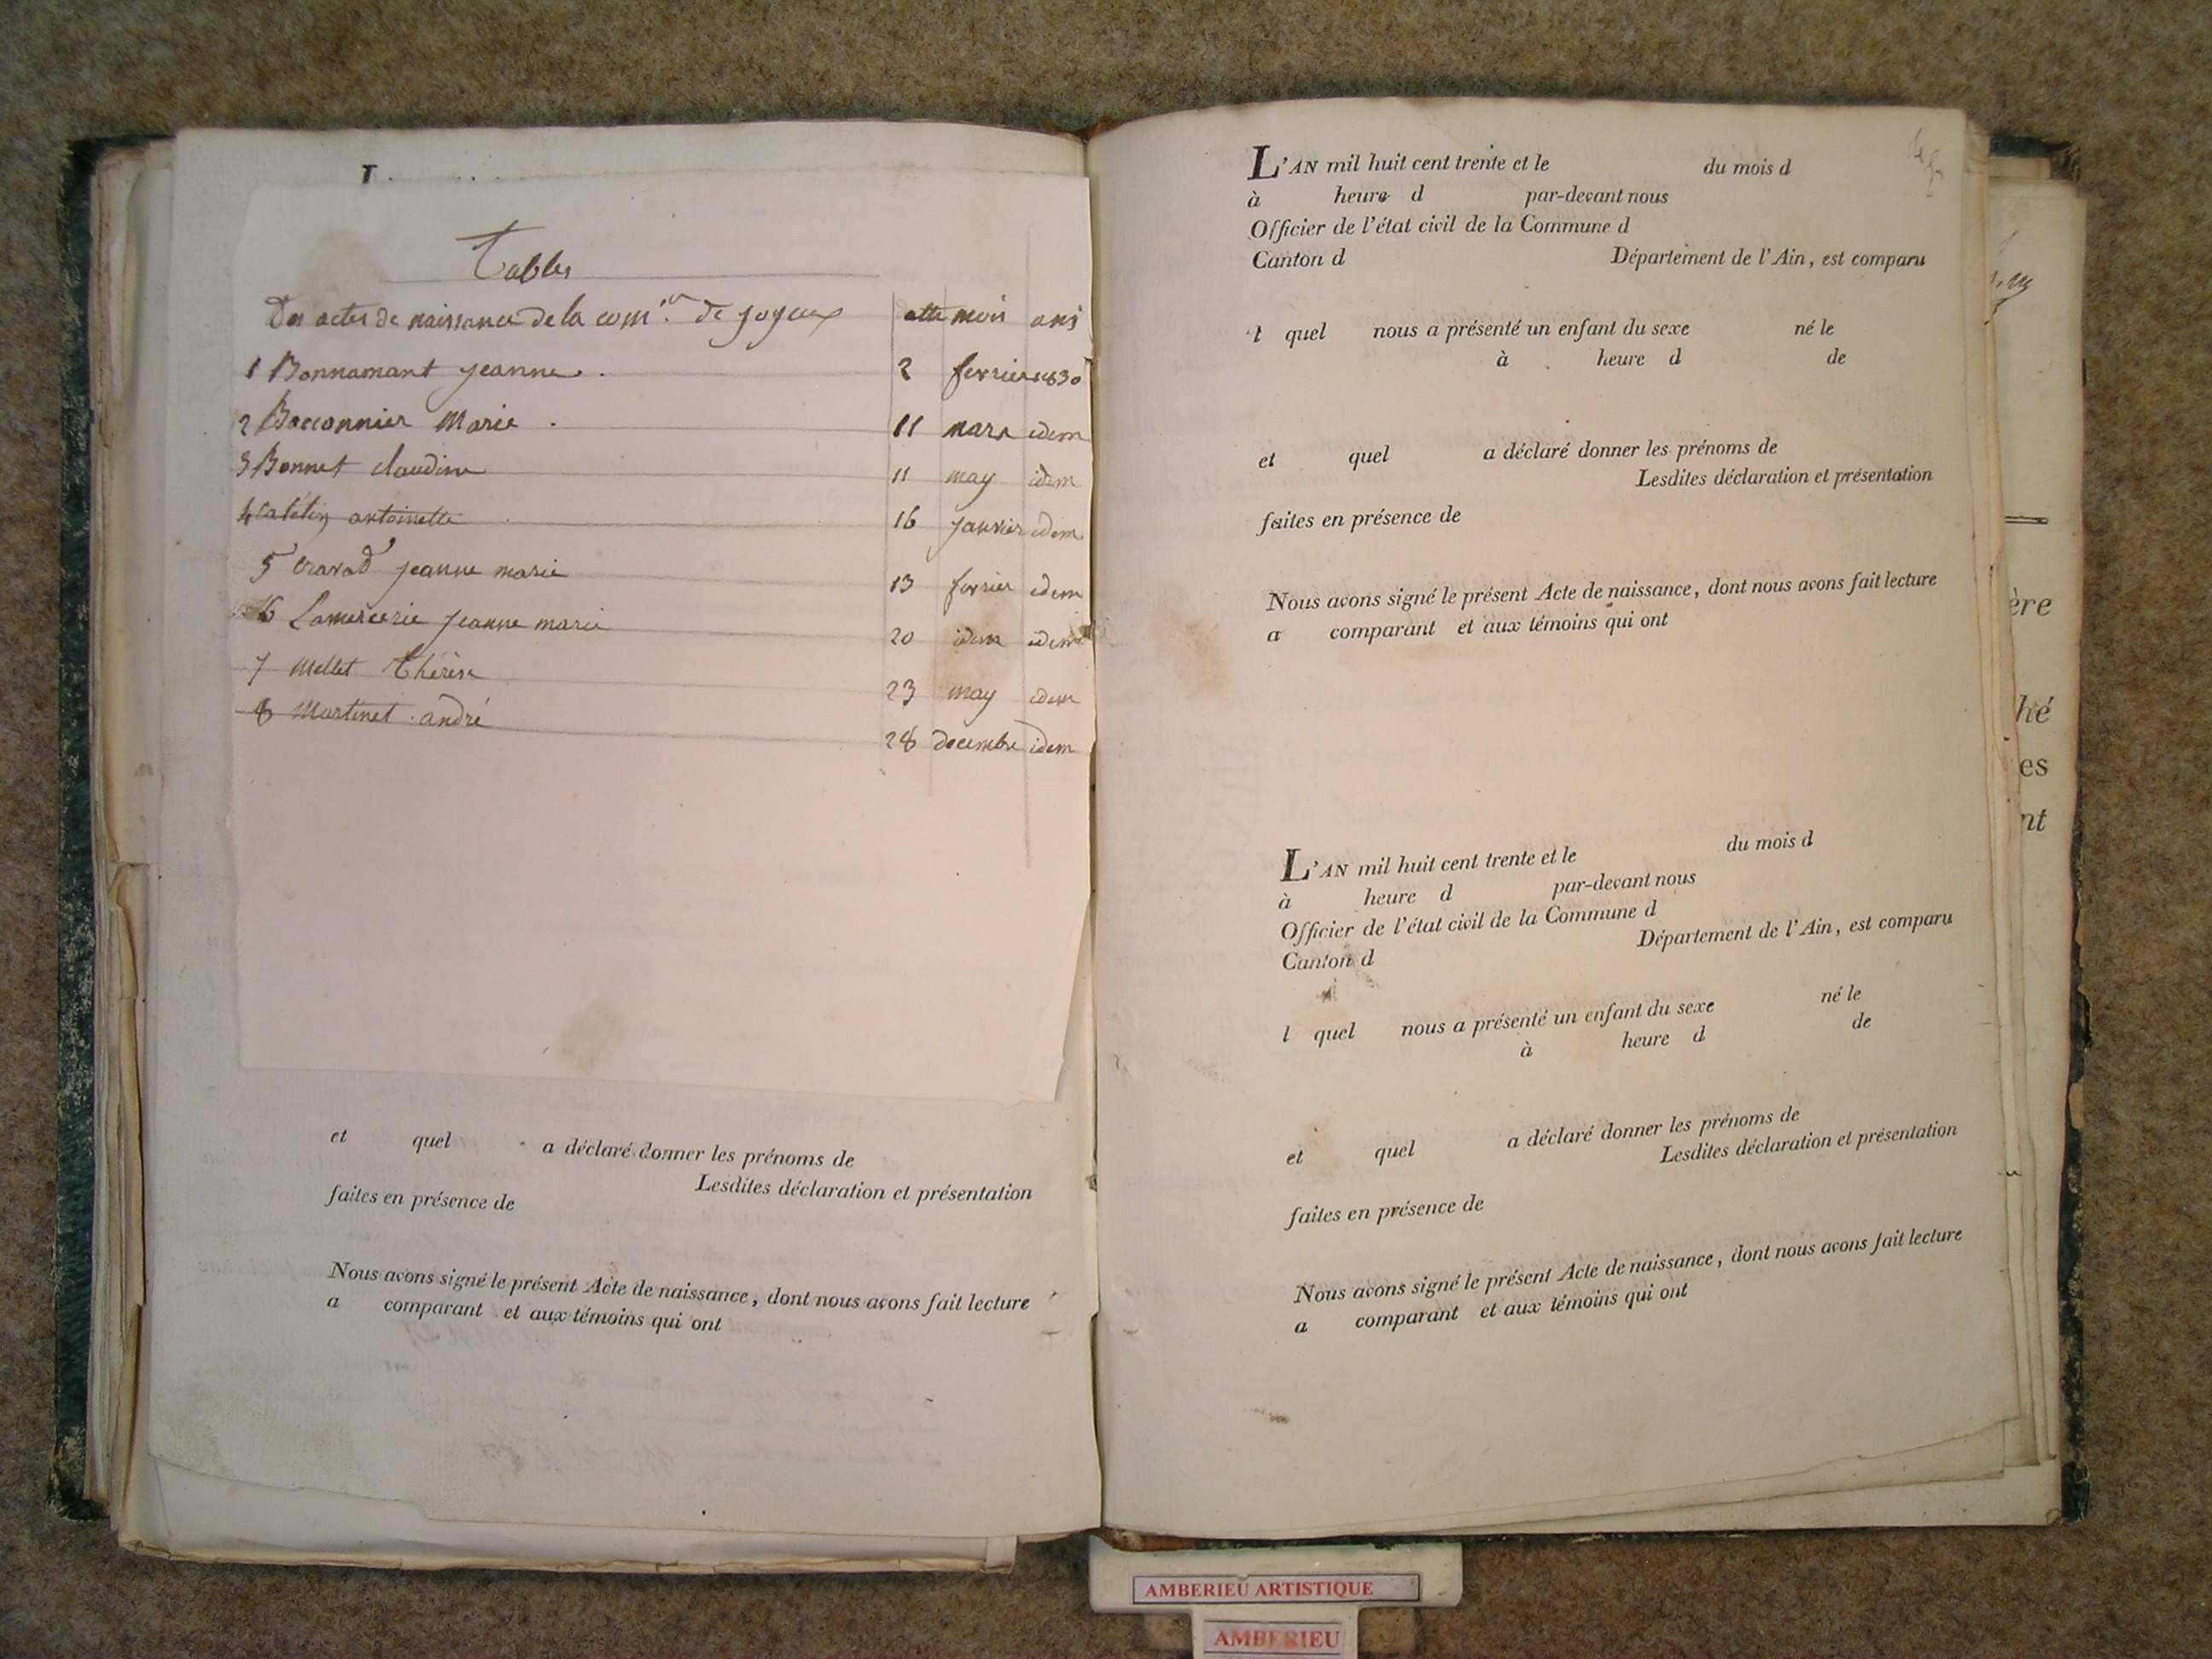 Tables
Des actes de naissance de la com.ne de joyeux mois ans
1 Bonnamant jeanne. 2 fevrier 1830
2 Bacconnier Marie. 11 mars idem
3 Bonnet claudine 11 may idem
4 antoinette 16 janvier idem
5 Cravad jeanne marie 13 fevrier idem
6 Lamercerie jeanne marie 20 idem idem
7 Mellet Thérèse 23 may idem
8 Martinet andré 28 decembre idem
et quel a déclaré donner les prénoms de
Lesdites déclaration et présentation
faites en présence de
Nous avons signé le présent Acte de naissance, dont nous avons fait lecture
a comparant et aux témoins qui ont
L'AN mil huit cent trente et le du mois d
à heure d par-devant nous
Officier de l'état civil de la Commune d
Canton d Département de l'Ain, est comparu
l quel nous a présenté un enfant du sexe né le
à heure d de
et quel a déclaré donner les prénoms de
Lesdites déclaration et présentation
faites en présence de
Nous avons signé le présent Acte de naissance, dont nous avons fait lecture
a comparant et aux témoins qui ont
L'AN mil huit cent trente et le du mois d
à heure d par-devant nous
Officier de l'état civil de la Commune d
Canton d Département de l'Ain, est comparu
l quel nous a présenté un enfant du sexe né le
à heure d de
et quel a déclaré donner les prénoms de
Lesdites déclaration et présentation
faites en présence de
Nous avons signé le présent Acte de naissance, dont nous avons fait lecture
a comparant et aux témoins qui ont
ère
hé
es
nt
AMBERIEU ARTISTIQUE
AMBERIEU